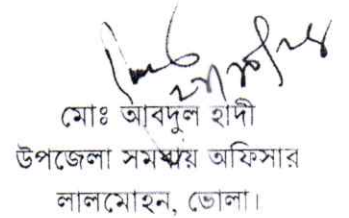 মোঃ আবদুল হাদী
উপজেলা সমবায় অফিসার
লালমোহন, ভোলা।